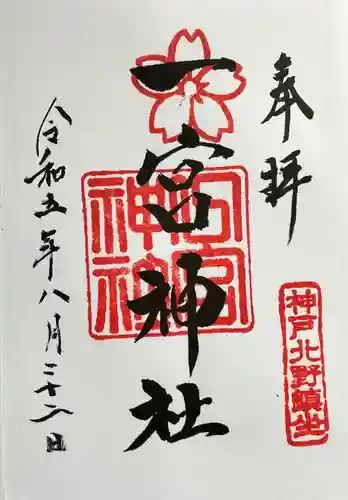 奉拝
神戸北野鎮坐
一宮神社
一宮神社
令和五年八月二十八日